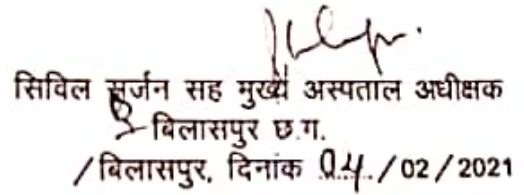 सिविल सर्जन सह मुख्य अस्पताल अधीक्षक
बिलासपुर छ.ग.
/ बिलासपुर, दिनांक 04 / 02 / 2021